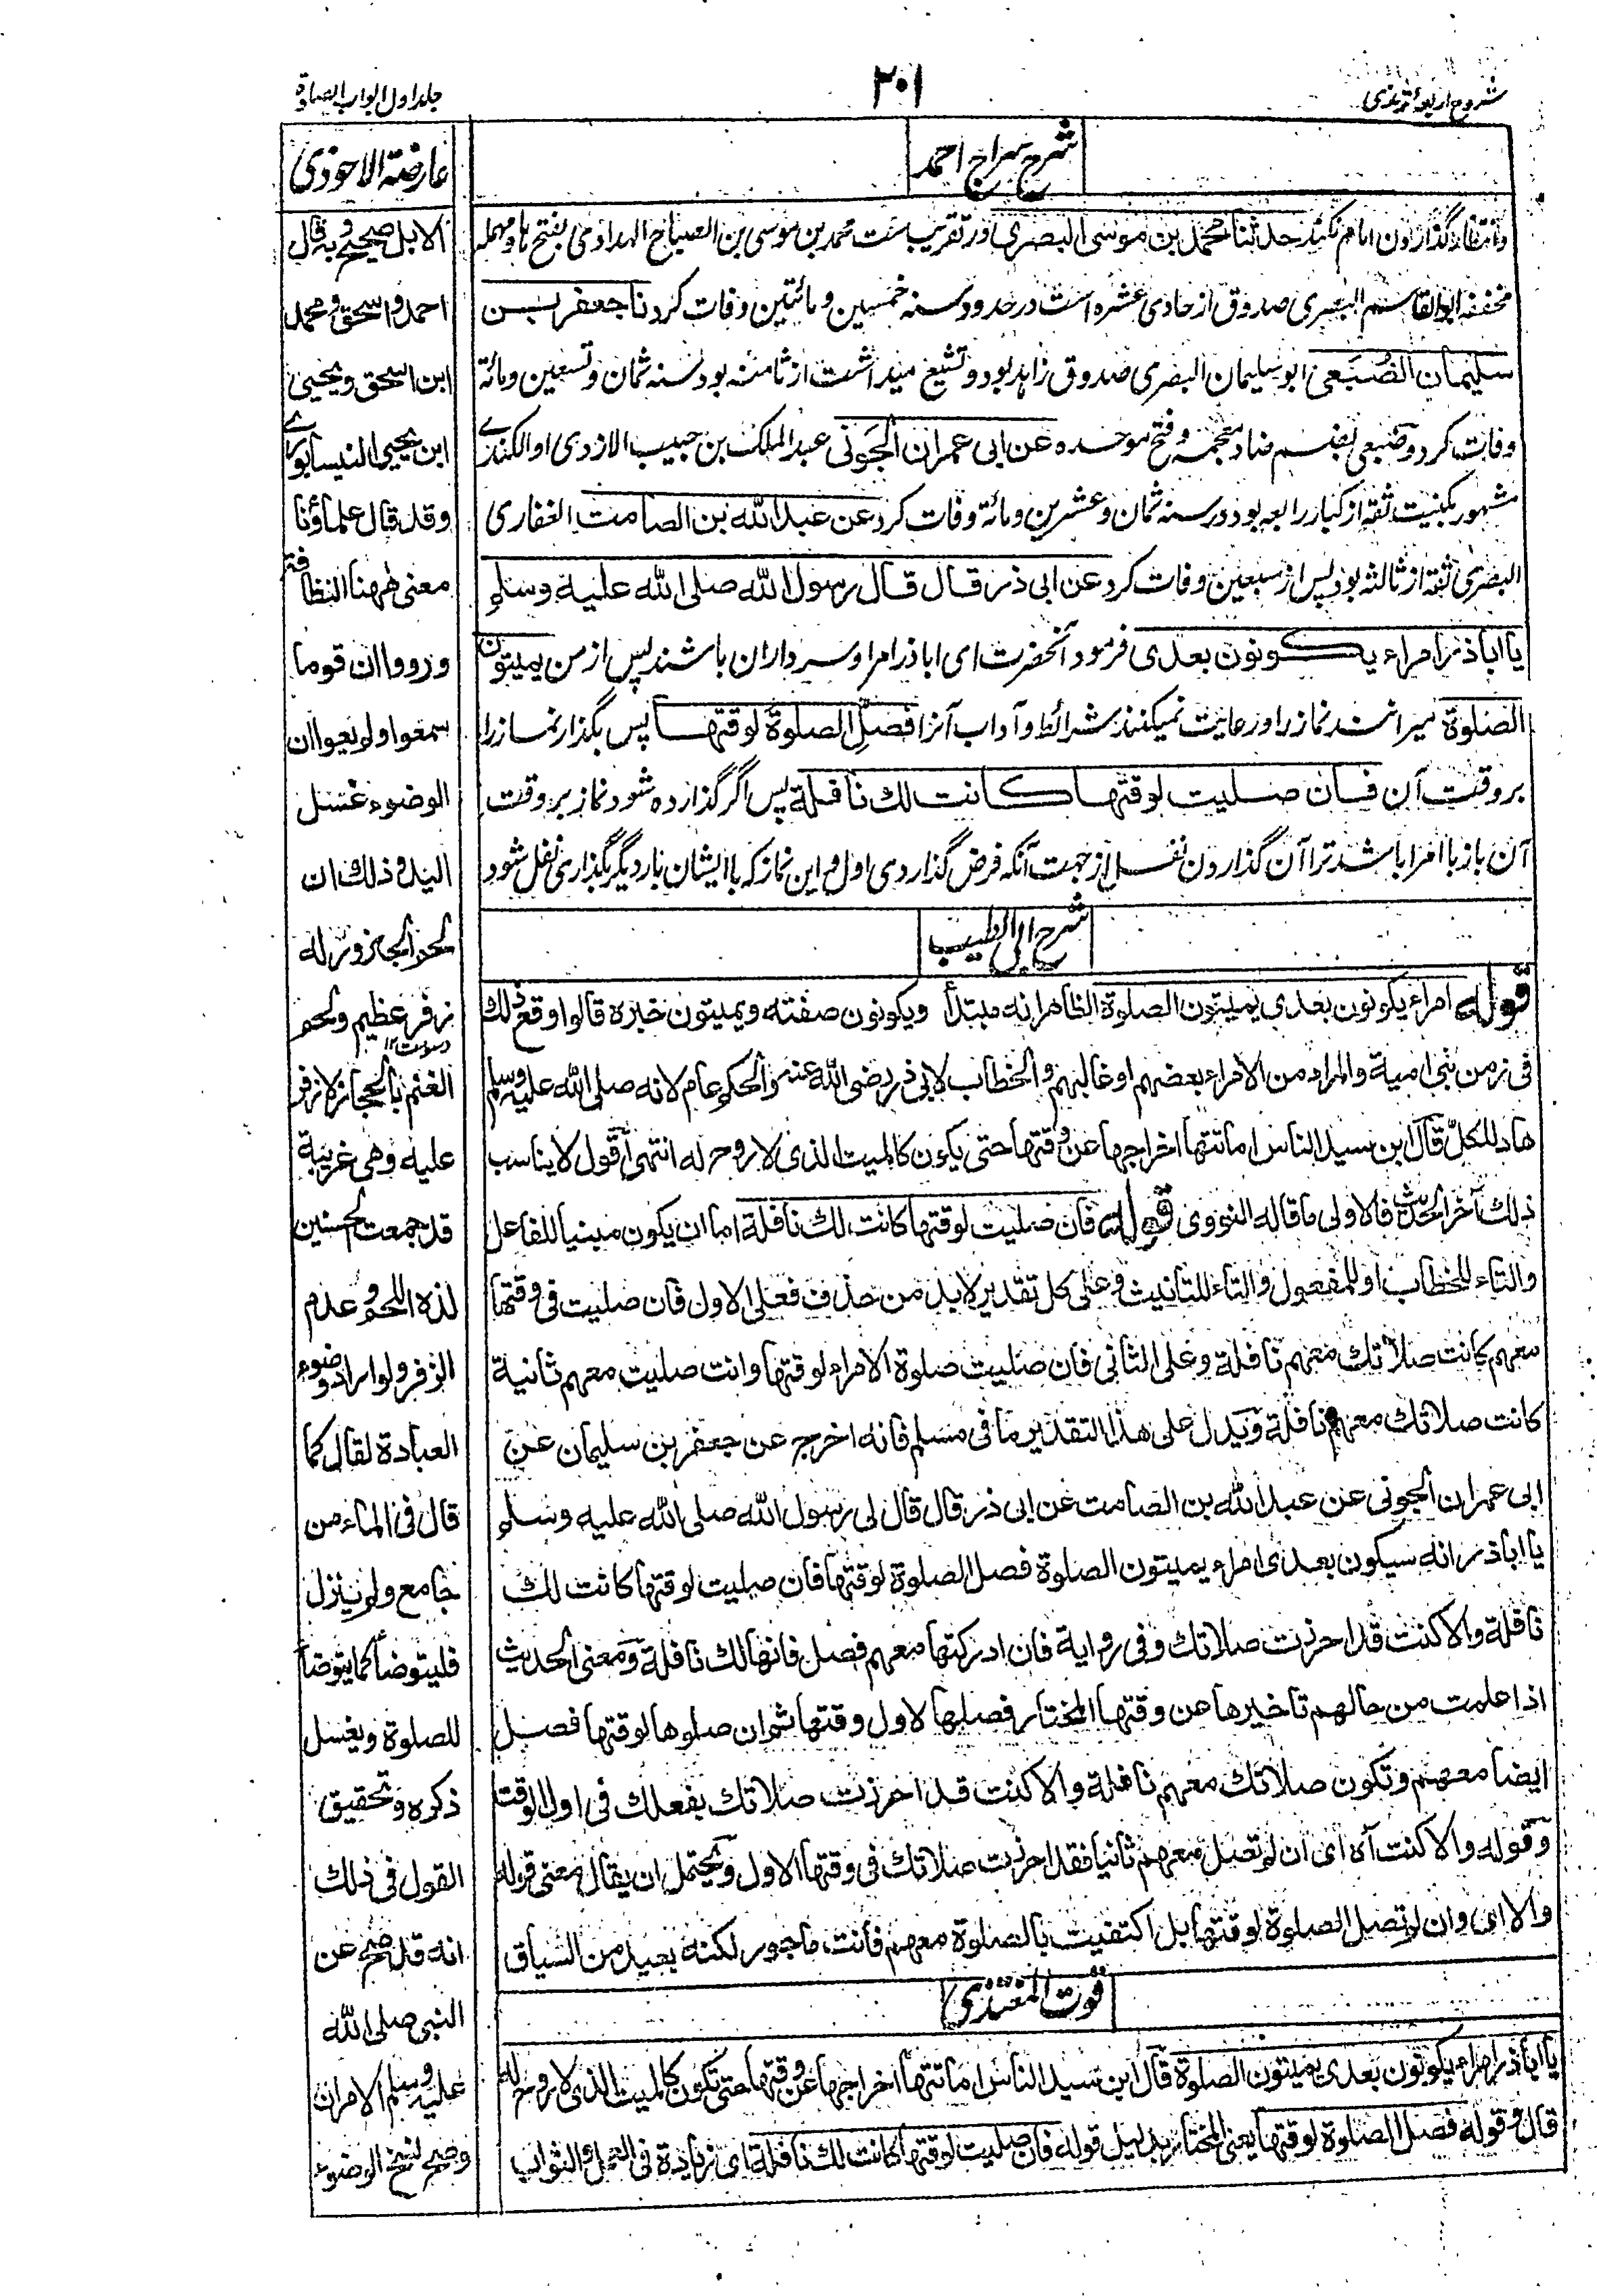 شروح اربعۂ ترمذی
۳۰۱
جلد اول ابواب الصلوة
شرح سراج احمد
گذاردن امام نکند حدثنا محمد بن موسی البصری در تقریب ست محمد بن موسی بن الصباح الهدادی بفتح ها و مهمله
مخففه ابوالقاسم البصری صدوق از حادی عشره است در حدود سنه خمسین و مائتین وفات کرد نا جعفر بن
سلیمان الضُبَعی ابو سلیمان البصری صدوق زاهد بود و تشیع میداشت از ثامنه بود سنه ثمان و تسعین و مائة
وفات کرد و ضبعی بضم ضاد معجمه و فتح موحده عن ابی عمران الجَونی عبد الملک بن حبیب الازدی او الکندے
مشهور بکنیت ثقه از کبار رابعه بود در سنه ثمان و عشرین و مائة وفات کرد عن عبد الله بن الصامت الغفاری
البصری ثقه از ثالثه بود پس از سبعین وفات کرد عن ابی ذر قال قال رسول الله صلی الله علیه وسلم
یا اباذر امراء یکونون بعدی فرمود آنحضرت ای اباذر امرا و سرداران باشند پس از من یمیتون
الصلوة میرانند نماز را و رعایت نمیکنند شرائط و آداب آنرا فصلِّ الصلوة لوقتها پس بگذار نماز را
بر وقت آن فان صلیت لوقتها کانت لك نافلة پس اگر گذارده شود نماز بر وقت
آن باز با امرا باشد ترا آن گذاردن نفل از جهت آنکه فرض گذاردی اول و این نماز که با ایشان بار دیگر بگذاری نفل شود
شرح ابی الطیب
قوله امراء یکونون بعدی یمیتون الصلوة الظاهر انه مبتدأ ویکونون صفته ویمیتون خبره قالوا وقع ذلك
فی زمن بنی امیة والمراد من الامراء بعضهم او غالبهم والخطاب لابی ذر رضی الله عنه والحکم عام لانه صلی الله علیه وسلم
هاد للکل قال ابن سید الناس اماتتها اخراجها عن وقتها حتی یکون کالمیت الذی لا روح له انتهی اقول لا یناسب
ذلك آخر الحدیث فالاولی ما قاله النووی قوله فان صلیت لوقتها کانت لك نافلة اما ان یکون مبنیا للفاعل
والتاء للخطاب او للمفعول والتاء للتانیث وعلی کل تقدیر لابد من حذف فعلی الاول فان صلیت فی وقتها
معهم کانت صلاتك معهم نافلة وعلی الثانی فان صلیت صلوة الامراء لوقتها وانت صلیت معهم ثانیة
کانت صلاتك معهم نافلة ویدل علی هذا التقدیر ما فی مسلم فانه اخرج عن جعفر بن سلیمان عن
ابی عمران الجونی عن عبد الله بن الصامت عن ابی ذر قال قال لی رسول الله صلی الله علیه وسلم
یا اباذر انه سیکون بعدی امراء یمیتون الصلوة فصل الصلوة لوقتها فان صلیت لوقتها کانت لك
نافلة والا کنت قد احرزت صلاتك وفی روایة فان ادرکتها معهم فصل فانها لك نافلة ومعنی الحدیث
اذا علمت من حالهم تاخیرها عن وقتها المختار فصلها لاول وقتها ثم ان صلوها لوقتها فصل
ایضا معهم وتکون صلاتك معهم نافلة والا کنت قد احرزت صلاتك بفعلك فی اول الوقت
وقوله والا کنت آه ای ان لم تصل معهم ثانیا فقد احرزت صلاتك فی وقتها الاول ویحتمل ان یقال معنی قوله
والا ای وان لم تصل الصلوة لوقتها بل اکتفیت بالصلوة معهم فانت ماجور لکنه بعید من السیاق
قوت المغتذی
یا اباذر امراء یکونون بعدی یمیتون الصلوة قال ابن سید الناس اماتتها اخراجها عن وقتها حتی تکون کالمیت الذی لا روح له
قال وقوله فصل الصلوة لوقتها یعنی المختار بدلیل قوله فان صلیت لوقتها کانت لك نافلة ای زیادة فی العمل والثواب
عارضة الاحوذی
الابل صحیح وبه قال
احمد واسحق ومحمد
ابن اسحق ویحیی
ابن یحیی النیسابورے
وقد قال علماؤنا
معنی ههنا النظافة
ورووا ان قوما
سمعوا ولم یعوا ان
الوضوء غسل
الید وذلك ان
لحم الجزور له
زفر عظیم ولحم
الغنم بالحجاز لا زفر
علیه وهی غریبة
قد جمعت الحسنین
لذة اللحم وعدم
الزفر ولو اراد وضوء
العبادة لقال کما
قال فی الماء من
جامع ولم ینزل
فلیتوضأ کما یتوضأ
للصلوة ویغسل
ذکره وتحقیق
القول فی ذلك
انه قد صح عن
النبی صلی الله
علیه وسلم الامران
وصح نسخ الوضوء